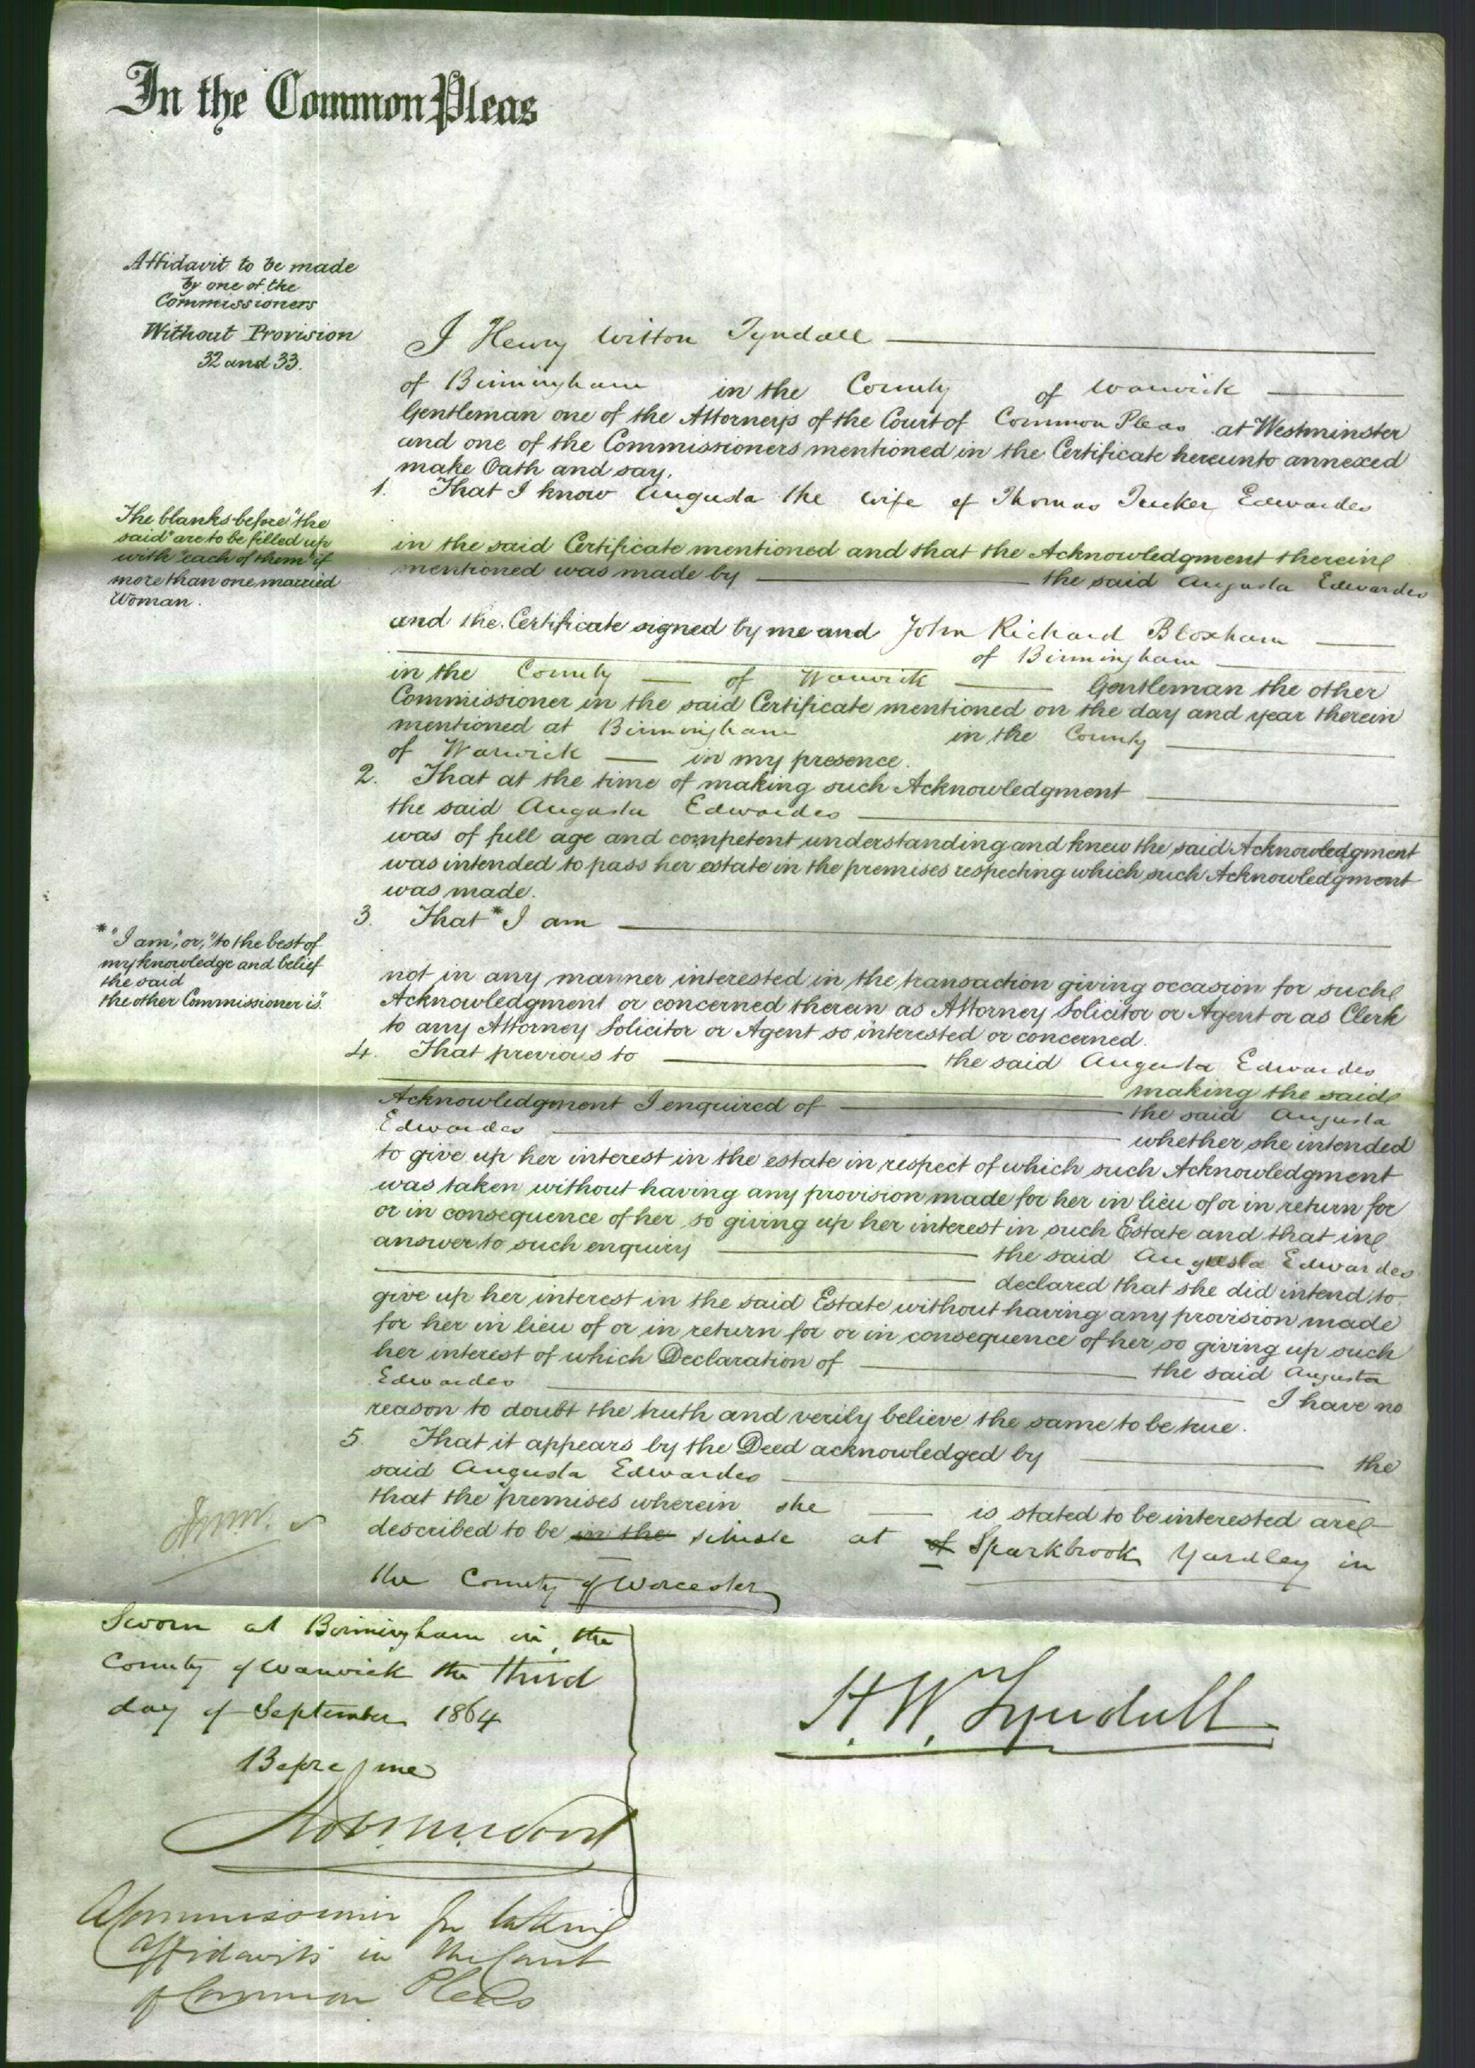 In the Common Pleas
Affidavit to be made
by one of the
Commissioners
Without Provision
32 and 33.
I Henry Witton Tyndall
of Birmingham in the County of Warwick
Gentleman one of the Attorneys of the Court of Common Pleas at Westminster
and one of the Commissioners mentioned in the Certificate hereunto annexed
make Oath and say,
1. That I know Augusta the wife of Thomas Tucker Edwardes
The blanks before "the
said" are to be filled up
with "each of them" if
more than one married
Woman.
in the said Certificate mentioned and that the Acknowledgment therein
mentioned was made by the said Augusta Edwardes
and the Certificate signed by me and John Richard Bloxham
of Birmingham
in the County of Warwick Gentleman the other
Commissioner in the said Certificate mentioned on the day and year therein
mentioned at Birmingham in the County
of Warwick in my presence.
2. That at the time of making such Acknowledgment
the said Augusta Edwardes
was of full age and competent understanding and knew the said Acknowledgment
was intended to pass her estate in the premises respecting which such Acknowledgment
was made.
3. That * I am
* "I am", or, "to the best of
my knowledge and belief
the said
the other Commissioner is"
not in any manner interested in the transaction giving occasion for such
Acknowledgment or concerned therein as Attorney Solicitor or Agent or as Clerk
to any Attorney Solicitor or Agent so interested or concerned.
4. That previous to the said Augusta Edwardes
making the said
Acknowledgment I enquired of the said Augusta
Edwardes whether she intended
to give up her interest in the estate in respect of which such Acknowledgment
was taken without having any provision made for her in lieu of or in return for
or in consequence of her so giving up her interest in such Estate and that in
answer to such enquiry the said Augusta Edwardes
declared that she did intend to
give up her interest in the said Estate without having any provision made
for her in lieu of or in return for or in consequence of her so giving up such
her interest of which Declaration of the said Augusta
Edwardes I have no
reason to doubt the truth and verily believe the same to be true.
5. That it appears by the Deed acknowledged by the
said Augusta Edwardes
that the premises wherein she is stated to be interested are
described to be in the situate at of Sparkbrook Yardley in
the County of Worcester
Sworn at Birmingham in the
County of Warwick the third
day of September 1864
Before me
H. W. Tyndall
A Commissioner for taking
affidavits in the Court
of Common Pleas